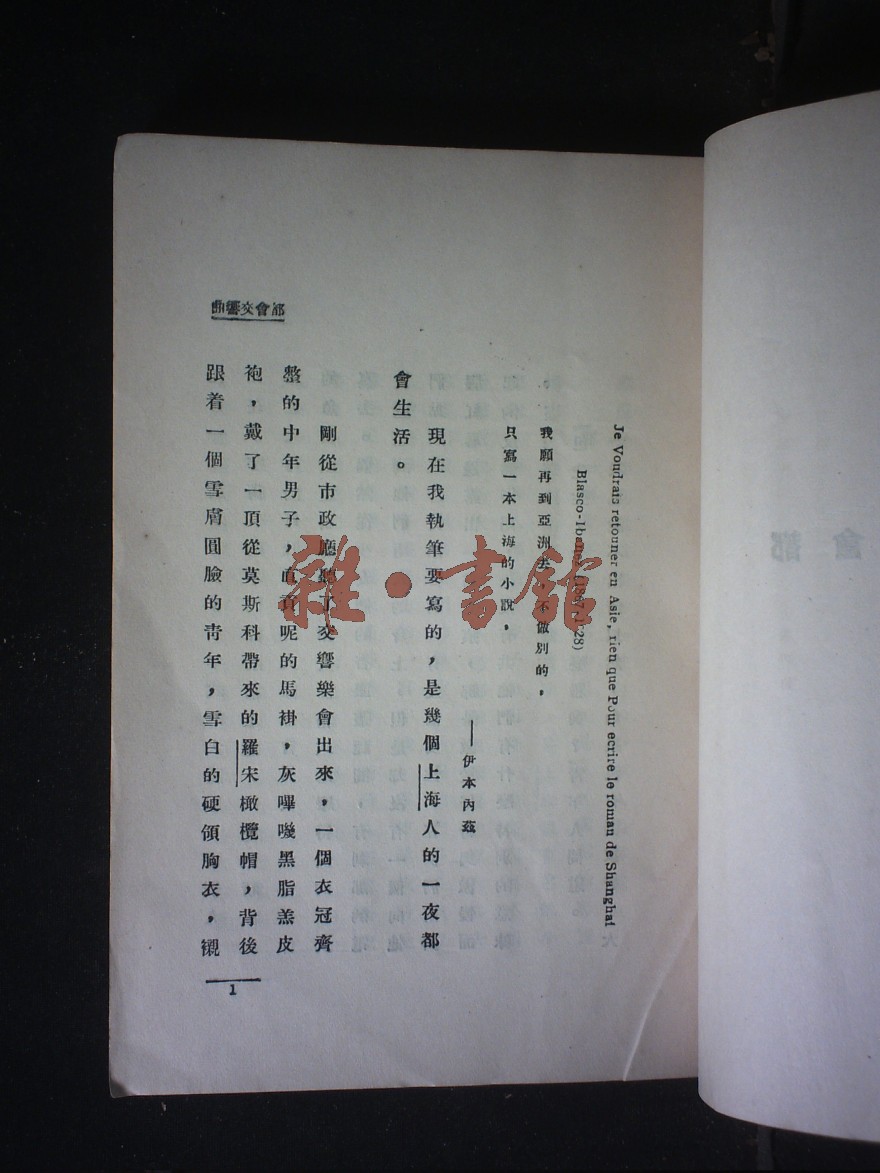 都會交響曲
Je Voudrais retouner en Asie, rien que Pour ecrire le romau de Shanghai
Blasco-Ibanez (1867-1928)
我願再到亞洲去，不做別的，
只寫一本上海的小說。
——伊本內茲
現在我執筆要寫的，是幾個上海人的一夜都
會生活。
剛從市政廳聽了交響樂會出來，一個衣冠齊
整的中年男子，直貢呢的馬褂，灰嗶嘰黑脂羔皮
袍，戴了一頂從莫斯科帶來的羅宋橄欖帽，背後
跟着一個雪膚圓臉的靑年，雪白的硬領胸衣，襯
1
雜·書館
都會